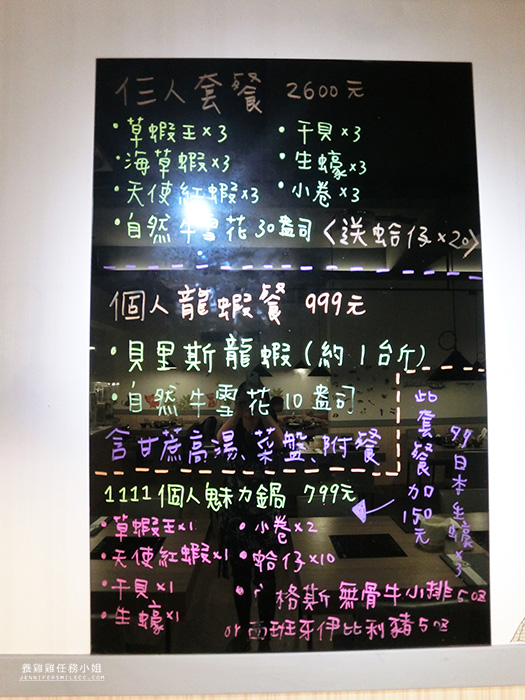 仨人套餐 2600元
·草蝦王×3 ·干貝×3
·海草蝦×3 ·生蠔×3
·天使紅蝦×3 ·小卷×3
·自然牛雪花30盎司〈送蛤仔×20〉
個人龍蝦餐 999元
·貝里斯龍蝦(約1台斤)
·自然牛雪花10盎司
含甘蔗高湯、菜盤、附餐
此套餐加150元
日本生蠔×3
1111個人魅力鍋 799元
·草蝦王×1 ·小卷×2
·天使紅蝦×1 ·蛤仔×10
·干貝×1
格斯無骨牛小排5oz
·生蠔×1
or西班牙伊比利豬5oz
養雞雞任務小姐
JENNIFERSMILECC.COM